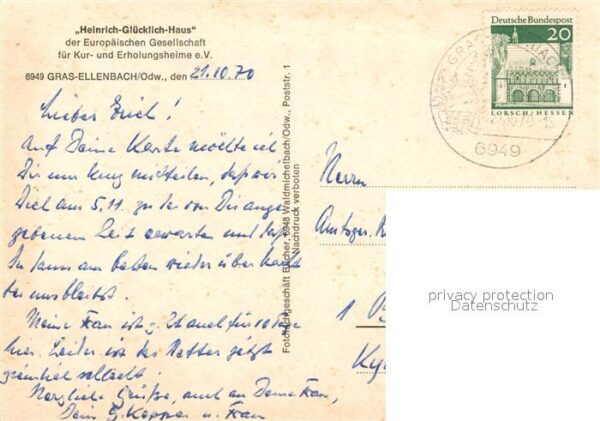 „Heinrich-Glücklich-Haus"
der Europäischen Gesellschaft
für Kur- und Erholungsheime e.V.
6949 GRAS-ELLENBACH/Odw., den 21.10.70
Lieber Erich!
Auf Deine Karte möchte ich
Dir nur kurz mitteilen, daß wir
Dich am 5.11. zu der von Dir ange-
gebenen Zeit erwarten und
Du dann am besten wieder über
bei uns bleibst.
Meine Frau ist z. Zt. auch für 10 Tage
hier. Leider ist das Wetter jetzt
ziemlich schlecht.
Herzliche Grüße, auch an Deine Frau,
Dein u. Frau
Fotofachgeschäft Bücher, 6948 Waldmichelbach/Odw., Poststr. 1
Nachdruck verboten
Deutsche Bundespost
20
LORSCH/HESSEN
6949
Herrn
Amtsger.
1
privacy protection
Datenschutz